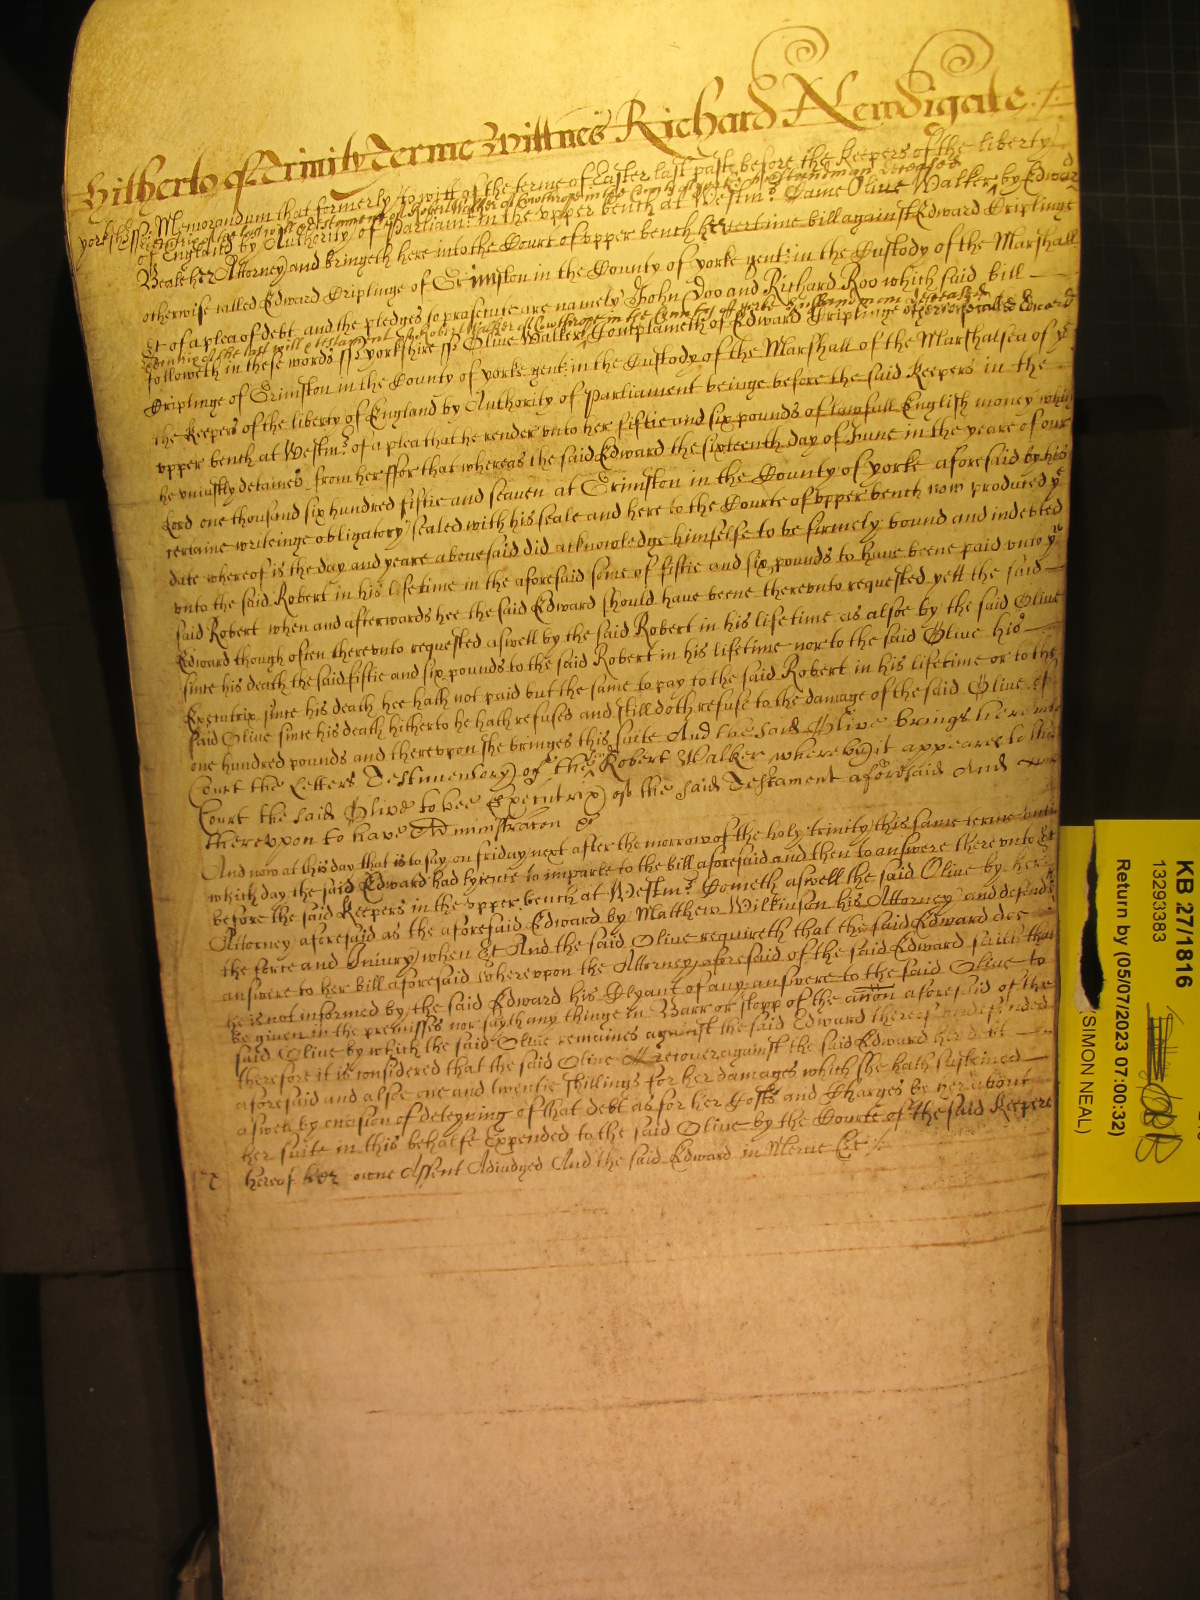 Hitherto of Trinity Terme Wittnes Richard Newdigate
yorkesh ss Memorandum that formerly to witt of the terme of Easter last paste before the Keepers of the liberty
Executrix of the last will & testament of Robert Walker of Cowthrope in the County of yorke husbandman deceased
of England by Authority of Parliamt in the vpper bench at Westmr Came Olive Walker by Edward
Beake her Attorney and bringeth here into the Court of vpper bench her certaine bill against Edward Driplinge
otherwise called Edward Driplinge of Grimston in the County of yorke gent in the Custody of the Marshall
&t of a plea of debt and the pledges to prosecute are namely John Doo and Richard Roo which said bill
Executrix of the last will & testament of Robert Walker of Cowthrope in the County of yorke husbandman deceased
followeth in these words ss yorkshire ss Olive Walker Complaineth of Edward Driplinge otherwise called Edward
Driplinge of Grimston in the County of yorke gent in the Custody of the Marshall of the Marshalsea of ye
the Keepers of the liberty of England by Authority of Parliament beinge before the said Keepers in the
vpper bench at Westmr of a plea that he render vnto her fiftie and six pounds of lawfull English money which
he vniustly detaines from her ffor that whereas the said Edward the sixteenth day of June in the yeare of our
Lord one thousand six hundred fiftie and seaven at Grimston in the County of yorke aforesaid by his
certaine writeinge obligatory sealed with his seale and here to the Courte of vpper bench now produced ye
date whereof is the day and yeare abovesaid did acknowledge himselfe to be firmely bound and indebted
vnto the said Robert in his lifetime in the aforesaid some of fiftie and six pounds to have beene paid vnto ye
said Robert when and afterwards hee the said Edward should have beene therevnto requested yett the said
Edward though often therevnto requested aswell by the said Robert in his lifetime as alsoe by the said Olive
since his death the said fiftie and six pounds to the said Robert in his lifetime nor to the said Olive his
Executrix since his death hee hath not paid but the same to pay to the said Robert in his lifetime or to the
said Olive since his death hitherto he hath refused and still doth refuse to the damage of the said Olive of
one hundred pounds and therevpon she bringes this suite And the said Olive brings here into
Court the Letters Testimentory of the Robert Walker whereby it appeares to the
Court the said Olive to bee Executrix of the said Testament aforesaid And
therevpon to have Administracon &c
And now at this day that is to say on friday next after the morrow of the holy trinity this same terme vntil
which day the said Edward had lycence to imparle to the bill aforesaid and then to answere there vnto &t
before the said Keepers in the vpper bench at Westmr Cometh aswell the said Olive by her
Attorney aforesaid as the aforesaid Edward by Matthew Wilkinson his Attorney and defends
the force and Iniury when &t And the said Olive requireth that the said Edward doe
answere to her bill aforesaid Wherevpon the Attorney aforesaid of the said Edward saith that
he is not informed by the said Edward his Clyant of any answere to the said Olive to
be given in the premisses nor sayth any thinge in Barr or stopp of the accon aforesaid of the
said Olive by which the said Olive remaines against the said Edward thereof vndefended
therefore it is considered that the said Olive recover against the said Edward her debt
aforesaid and alsoe one and twentie shillings for her damages which she hath susteined
aswell by occasion of deteyning of that debt as for her Costs and Charges by her about
her suite in this behalfe Expended to the said Olive by the Courte of the said Keepers
hereof her owne Assent Adiudged And the said Edward in Mercie &c
KB 27/1816
13293383
Return by (05/07/2023 07:00:32)
(SIMON NEAL)